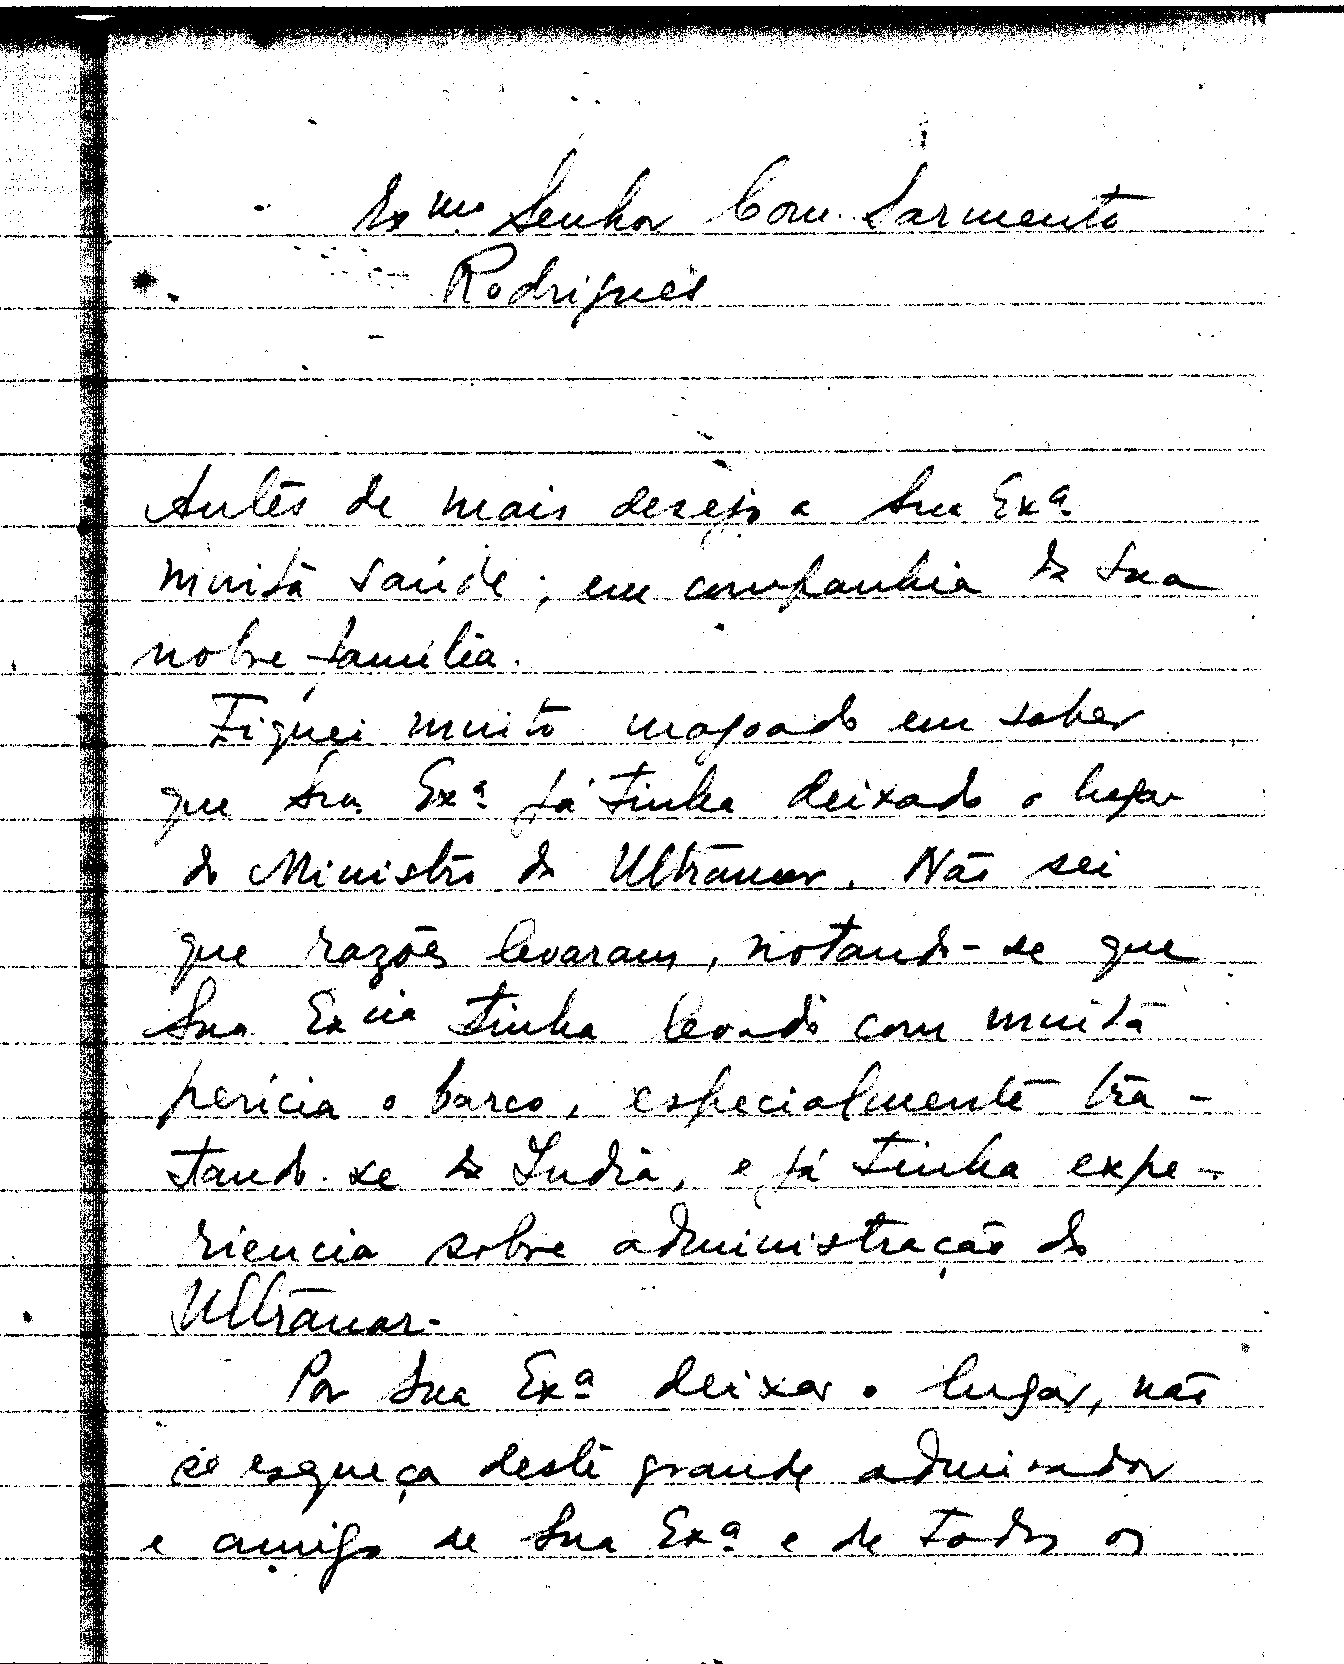 Exmo. Senhor Com. Sarmento
Rodrigues
Antes de mais desejo a Sua Exª
muita saúde, em companhia de Sua
nobre família.
Fiquei muito magoado em saber
que Sua Exª já tinha deixado o lugar
do Ministro do Ultramar. Não sei
que razões levaram, notando-se que
Sua Excia tinha levado com muita
perícia o barco, especialmente tra-
tando-se da India, e já tinha expe-
riencia sobre administração do
Ultramar.
Por Sua Exª deixar o lugar, não
se esqueça deste grande admirador
e amigo de Sua Exª e de todos os